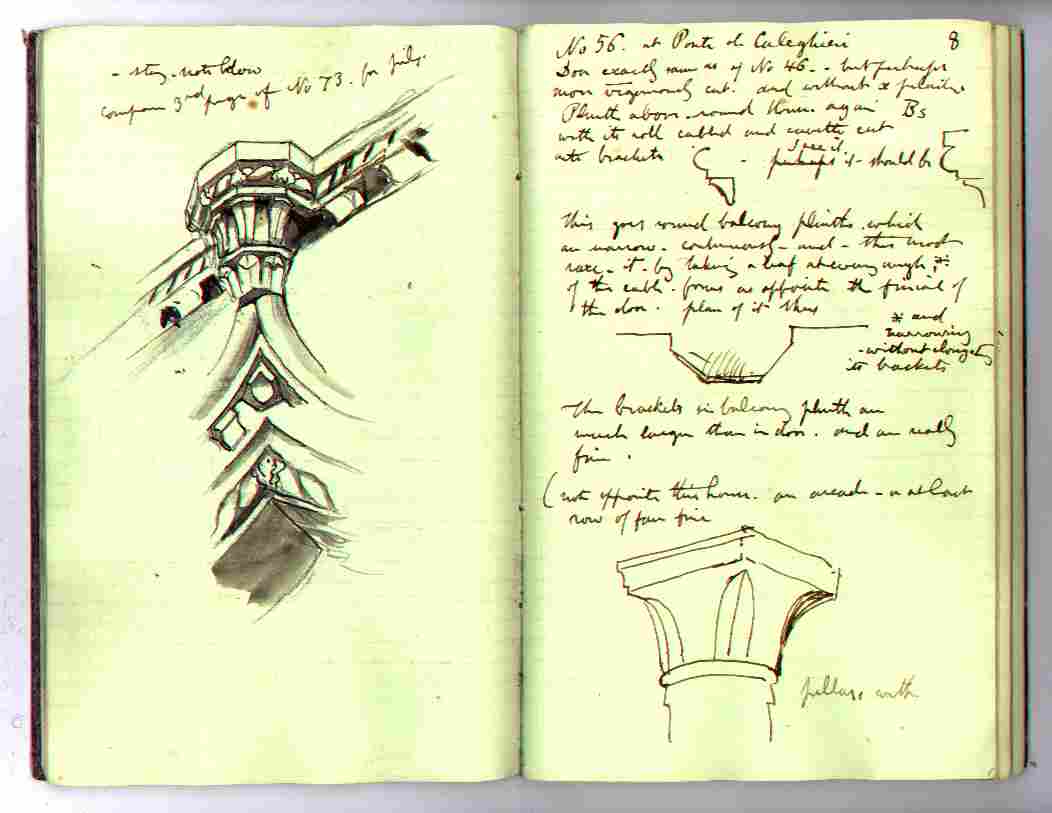 compare 3rd page of No 73. for
8
No 56. at Ponte de Caleghieri
Door exactly same as of No 46. - but perhaps
more vigorously cut. and without x
Plinth above. round them again Bs
with its roll cabled and cavetto cut
into brackets
I see it
perhaps it should be
This goes round balcony plinths. which
are narrow. continuously - and - this mode
rate - it - by taking a leaf at every angle *
of the cable. forms as opposite the finial of
the door. plan of it thus
* and
narrowing
without elongating
its brackets
The brackets in balcony plinth are
much larger than in door. and are really
fine.
(note opposite this house. an arcade - or at least
row of four fine
pillars with